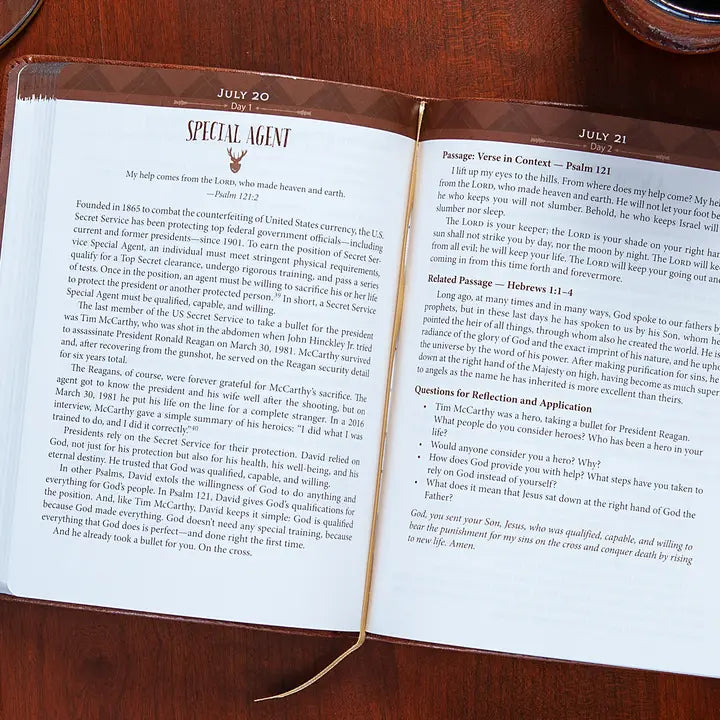 JULY 20
Day 1
SPECIAL AGENT
My help comes from the LORD, who made heaven and earth.
—Psalm 121:2
Founded in 1865 to combat the counterfeiting of United States currency, the U.S.
Secret Service has been protecting top federal government officials—including
current and former presidents—since 1901. To earn the position of Secret Ser-
vice Special Agent, an individual must meet stringent physical requirements,
qualify for a Top Secret clearance, undergo rigorous training, and pass a series
of tests. Once in the position, an agent must be willing to sacrifice his or her life
to protect the president or another protected person.³⁹ In short, a Secret Service
Special Agent must be qualified, capable, and willing.
The last member of the US Secret Service to take a bullet for the president
was Tim McCarthy, who was shot in the abdomen when John Hinckley Jr. tried
to assassinate President Ronald Reagan on March 30, 1981. McCarthy survived
and, after recovering from the gunshot, he served on the Reagan security detail
for six years total.
The Reagans, of course, were forever grateful for McCarthy's sacrifice. The
agent got to know the president and his wife well after the shooting, but on
March 30, 1981 he put his life on the line for a complete stranger. In a 2016
interview, McCarthy gave a simple summary of his heroics: "I did what I was
trained to do, and I did it correctly."⁴⁰
Presidents rely on the Secret Service for their protection. David relied on
God, not just for his protection but also for his health, his well-being, and his
eternal destiny. He trusted that God was qualified, capable, and willing.
In other Psalms, David extols the willingness of God to do anything and
everything for God's people. In Psalm 121, David gives God's qualifications for
the position. And, like Tim McCarthy, David keeps it simple: God is qualified
because God made everything. God doesn't need any special training, because
everything that God does is perfect—and done right the first time.
And he already took a bullet for you. On the cross.
JULY 21
Day 2
Passage: Verse in Context — Psalm 121
I lift up my eyes to the hills. From where does my help come? My hel
from the LORD, who made heaven and earth. He will not let your foot be
he who keeps you will not slumber. Behold, he who keeps Israel will
slumber nor sleep.
The LORD is your keeper; the LORD is your shade on your right han
sun shall not strike you by day, nor the moon by night. The LORD will kee
from all evil; he will keep your life. The LORD will keep your going out an
coming in from this time forth and forevermore.
Related Passage — Hebrews 1:1–4
Long ago, at many times and in many ways, God spoke to our fathers by
prophets, but in these last days he has spoken to us by his Son, whom he
pointed the heir of all things, through whom also he created the world. He is
radiance of the glory of God and the exact imprint of his nature, and he upho
the universe by the word of his power. After making purification for sins, he
down at the right hand of the Majesty on high, having become as much super
to angels as the name he has inherited is more excellent than theirs.
Questions for Reflection and Application
• Tim McCarthy was a hero, taking a bullet for President Reagan.
What people do you consider heroes? Who has been a hero in your
life?
• Would anyone consider you a hero? Why?
• How does God provide you with help? What steps have you taken to
rely on God instead of yourself?
• What does it mean that Jesus sat down at the right hand of God the
Father?
God, you sent your Son, Jesus, who was qualified, capable, and willing to
bear the punishment for my sins on the cross and conquer death by rising
to new life. Amen.